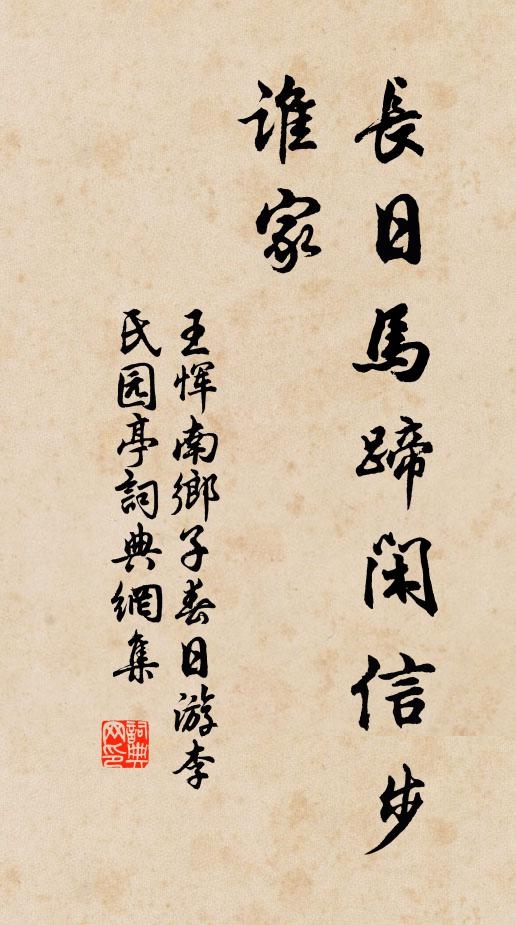 長日馬蹄閑信步
誰家
王恽南鄉子春日游李
民园亭詞典網集
詞典
网印